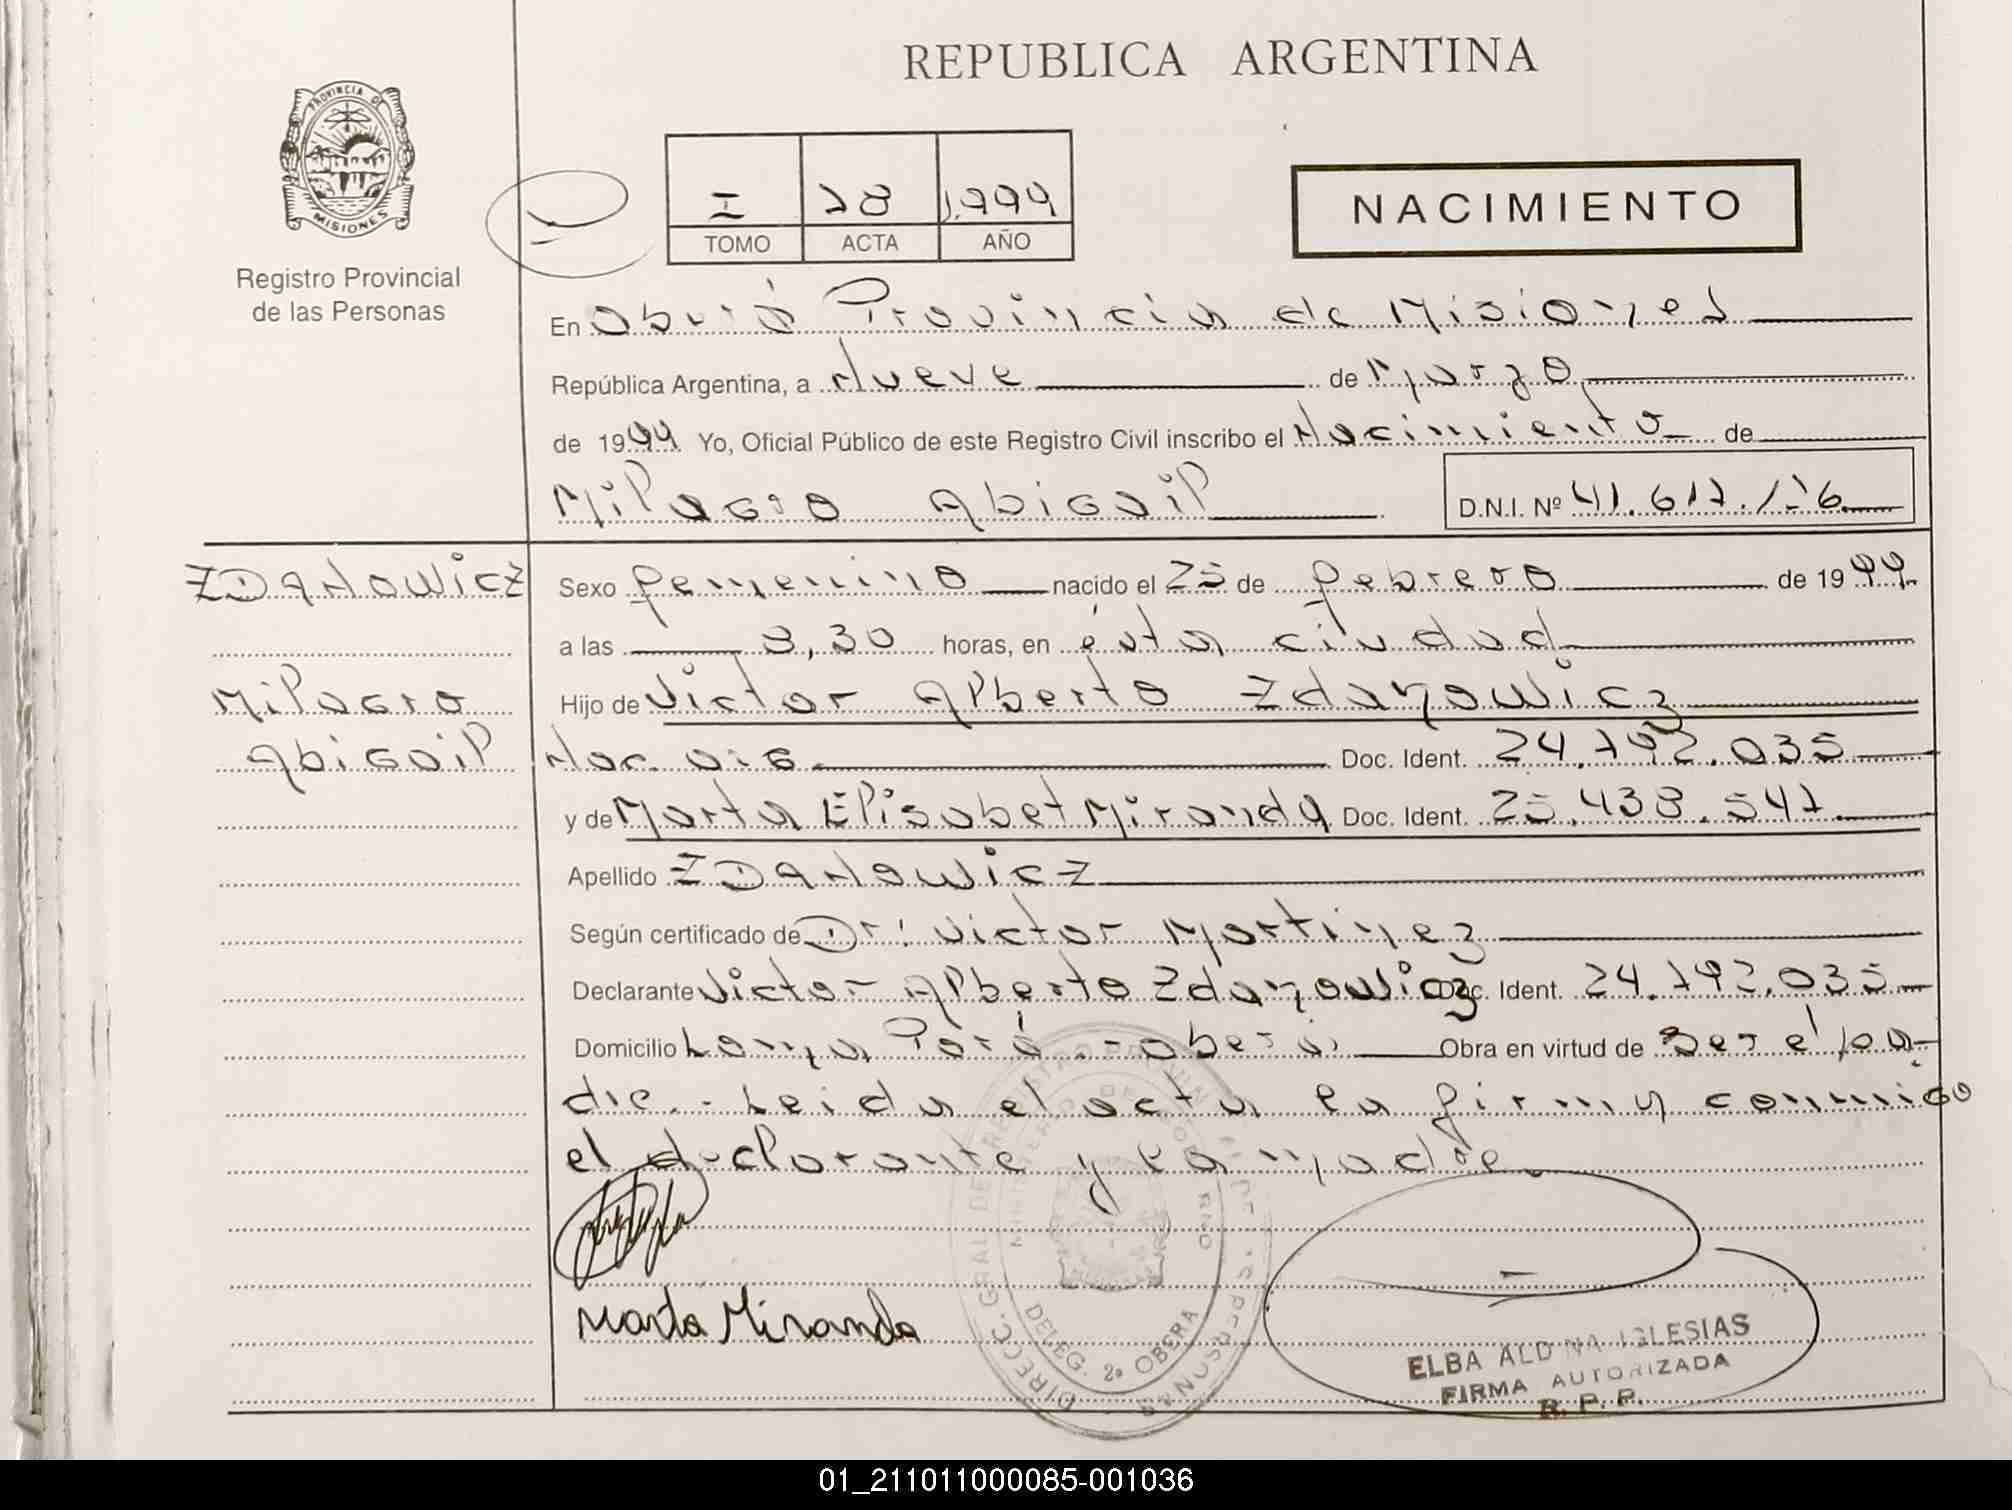 REPUBLICA ARGENTINA
PROVINCIA DE
MISIONES
Registro Provincial
de las Personas
I 78 1.999
TOMO ACTA AÑO
NACIMIENTO
En Oberá Provincia de Misiones
República Argentina, a Nueve de Marzo
de 1999 Yo, Oficial Público de este Registro Civil inscribo el Nacimiento de
Milagro Abigail D.N.I. Nº 41.617.
ZDANOWICZ
Milagro
Abigail
Sexo femenino nacido el 25 de febrero de 1999.
a las 8,30 horas, en ésta ciudad
Hijo de Victor Alberto Zdanowicz
Doc. Ident. 24.792.035
y de Marta Elisabet Miranda Doc. Ident. 25.438.547
Apellido ZDANOWICZ
Según certificado de Dr: Victor Martinez
Declarante Victor Alberto Zdanowicz Doc. Ident. 24.792.035
Domicilio Loma Porá - Oberá Obra en virtud de Ser el pa-
dre.- Leida el acta la firma conmigo
el declarante y la madre.
Marta Miranda
DELEG. 2a OBERA
ELBA ALDINA IGLESIAS
FIRMA AUTORIZADA
R. P. P.
01_211011000085-001036